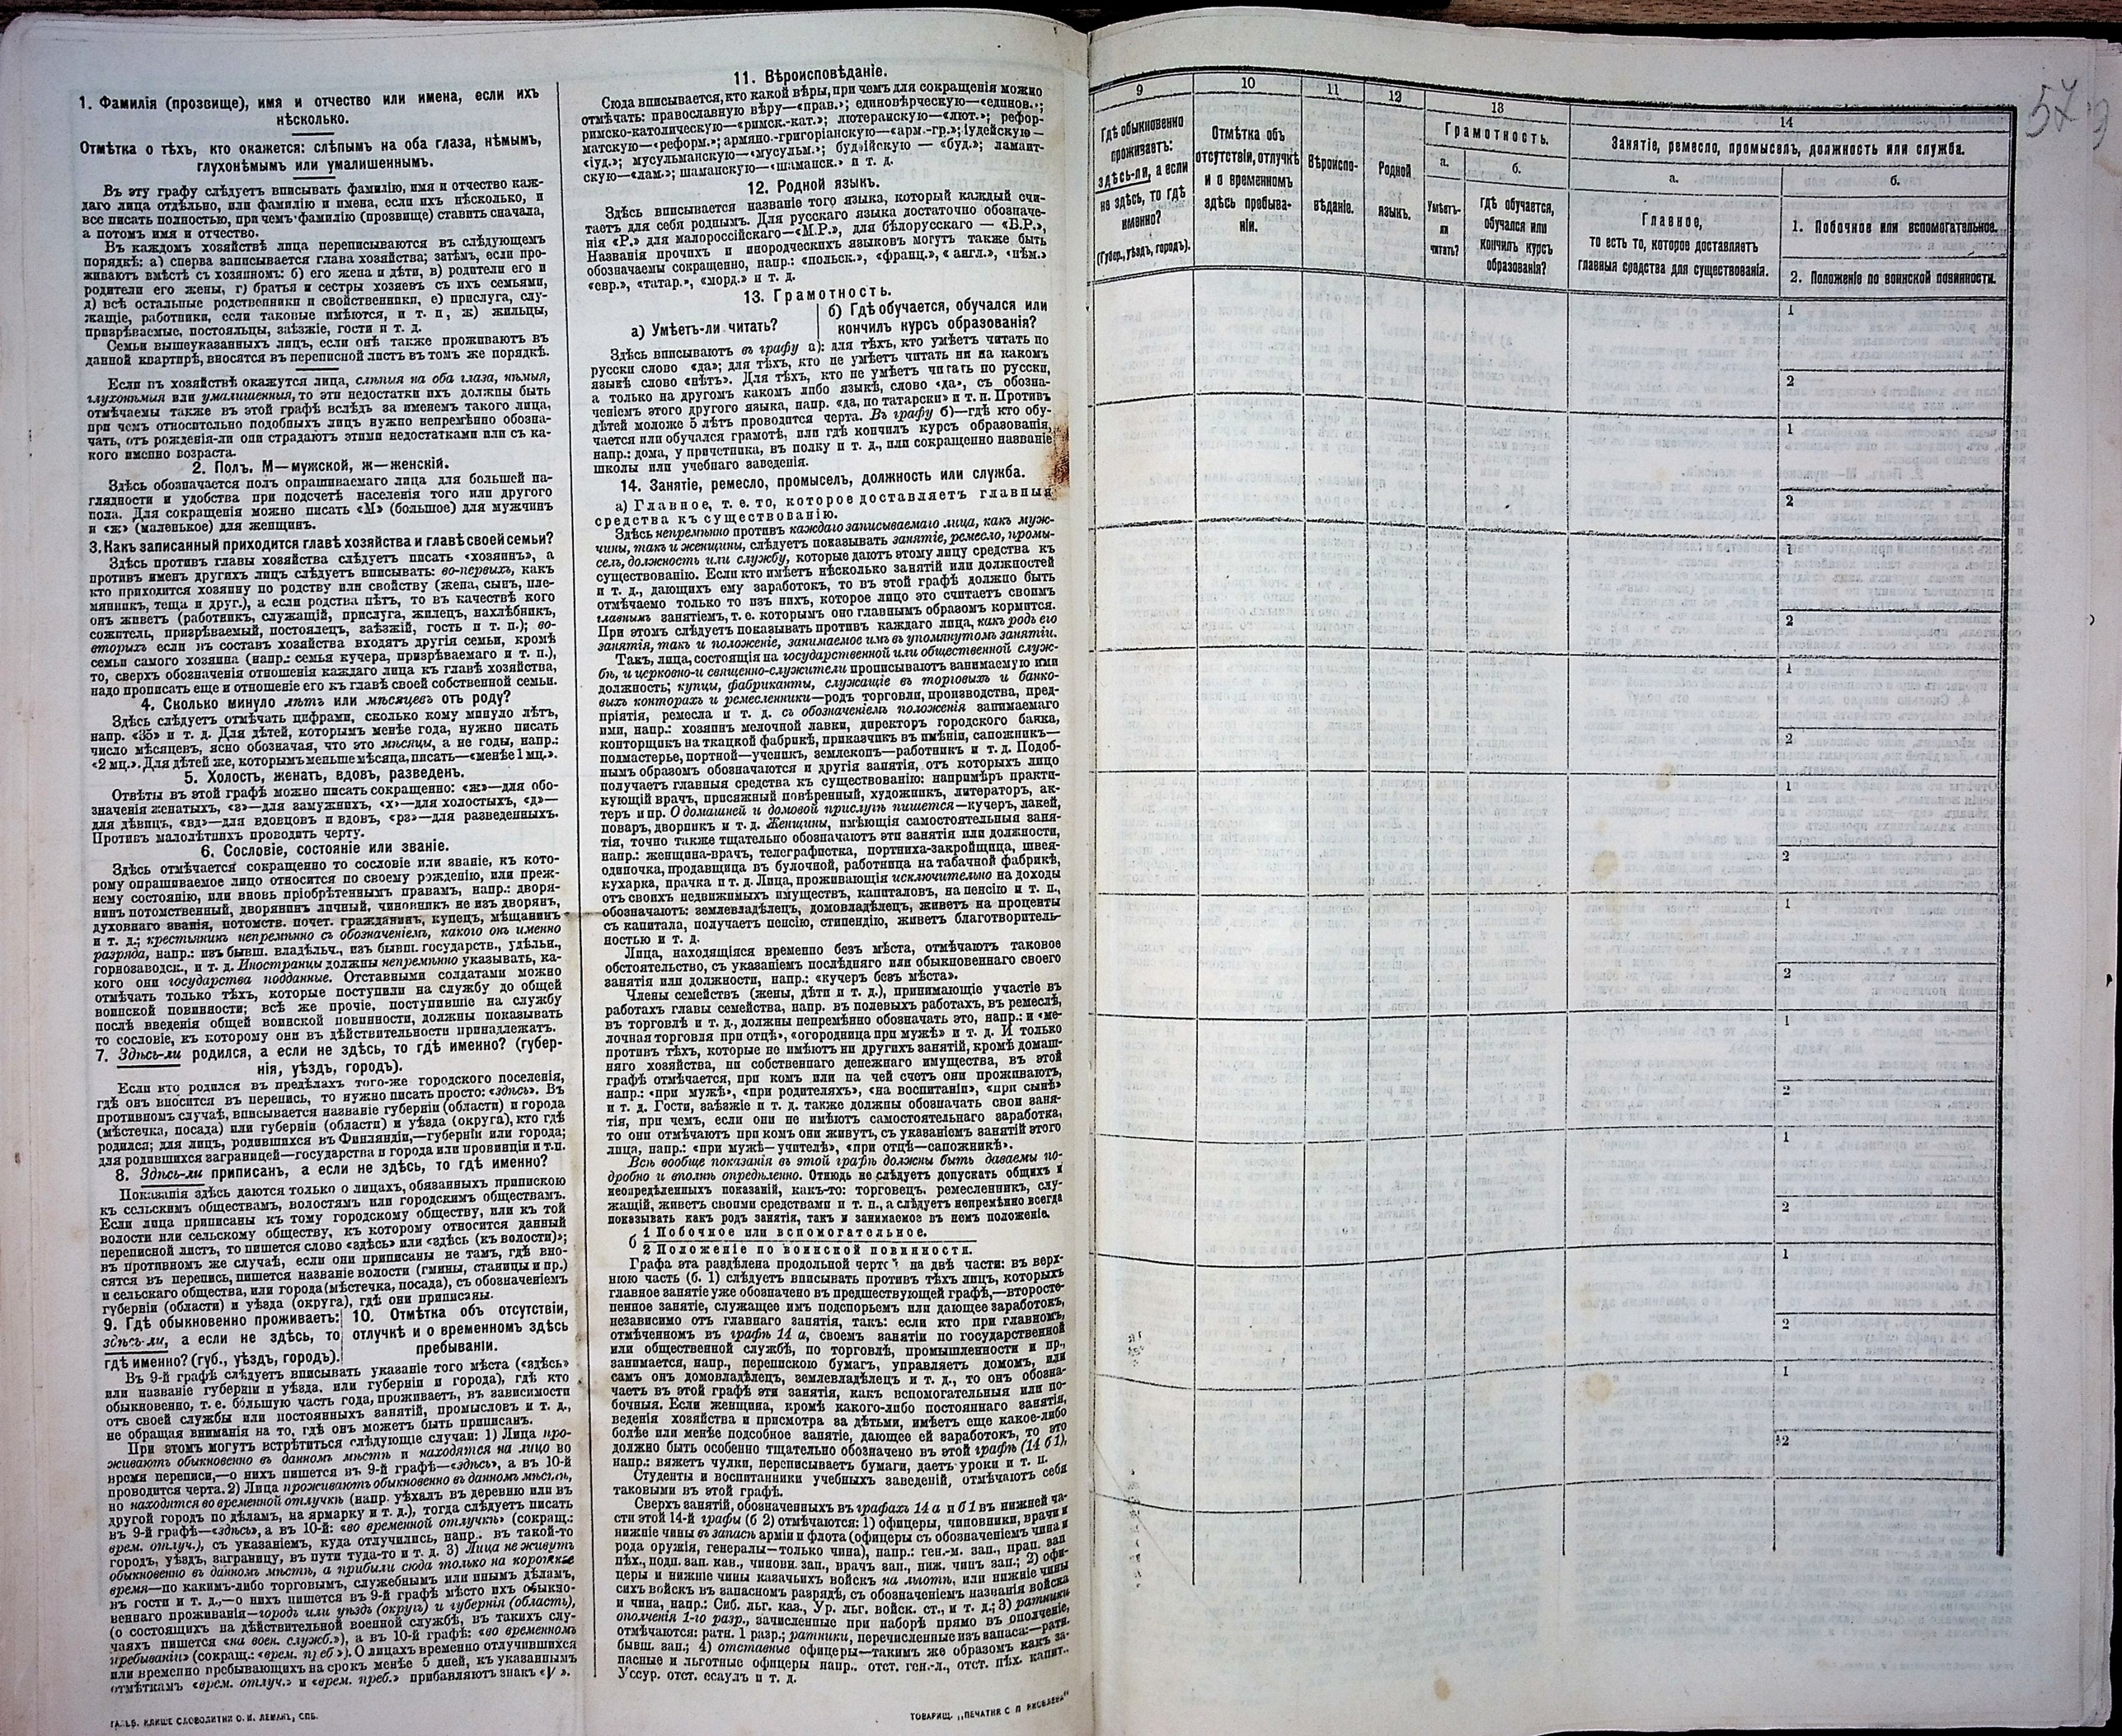 1. Фамилія (прозвище), имя и отчество или имена, если ихъ
нѣсколько.
Отмѣтка о тѣхъ, кто окажется: слѣпымъ на оба глаза, нѣмымъ,
глухонѣмымъ или умалишеннымъ.
Въ эту графу слѣдуетъ вписывать фамилію, имя и отчество каж-
даго лица отдѣльно, или фамилію и имена, если ихъ нѣсколько, и
все писать полностью, при чемъ фамилію (прозвище) ставить сначала,
а потомъ имя и отчество.
Въ каждомъ хозяйствѣ лица переписываются въ слѣдующемъ
порядкѣ: а) сперва записывается глава хозяйства; затѣмъ, если про-
живаютъ вмѣстѣ съ хозяиномъ: б) его жена и дѣти, в) родители его и
родители его жены, г) братья и сестры хозяевъ съ ихъ семьями,
д) всѣ остальные родственники и свойственники, е) прислуга, слу-
жащіе, работники, если таковые имѣются, и т. п, ж) жильцы,
призрѣваемые, постояльцы, заѣзжіе, гости и т. д.
Семьи вышеуказанныхъ лицъ, если онѣ также проживаютъ въ
данной квартирѣ, вносятся въ переписной листъ въ томъ же порядкѣ.
Если въ хозяйствѣ окажутся лица, слѣпыя на оба глаза, нѣмыя,
глухонѣмыя или умалишенныя, то эти недостатки ихъ должны быть
отмѣчаемы также въ этой графѣ вслѣдъ за именемъ такого лица,
при чемъ относительно подобныхъ лицъ нужно непремѣнно обозна-
чать, отъ рожденія-ли они страдаютъ этими недостатками или съ ка-
кого именно возраста.
2. Полъ. М—мужской, ж—женскій.
Здѣсь обозначается полъ опрашиваемаго лица для большей на-
глядности и удобства при подсчетѣ населенія того или другого
пола. Для сокращенія можно писать «М» (большое) для мужчинъ
и «ж» (маленькое) для женщинъ.
3. Какъ записанный приходится главѣ хозяйства и главѣ своей семьи?
Здѣсь противъ главы хозяйства слѣдуетъ писать «хозяинъ», а
противъ именъ другихъ лицъ слѣдуетъ вписывать: во-первыхъ, какъ
кто приходится хозяину по родству или свойству (жена, сынъ, пле-
мянникъ, теща и друг.), а если родства нѣтъ, то въ качествѣ кого
онъ живетъ (работникъ, служащій, прислуга, жилецъ, нахлѣбникъ,
сожитель, призрѣваемый, постоялецъ, заѣзжій, гость и т. п.); во-
вторыхъ если въ составъ хозяйства входятъ другія семьи, кромѣ
семьи самого хозяина (напр.: семья кучера, призрѣваемаго и т. п.),
то, сверхъ обозначенія отношенія каждаго лица къ главѣ хозяйства,
надо прописать еще и отношеніе его къ главѣ своей собственной семьи.
4. Сколько минуло лѣтъ или мѣсяцевъ отъ роду?
Здѣсь слѣдуетъ отмѣчать цифрами, сколько кому минуло лѣтъ,
напр. «35» и т. д. Для дѣтей, которымъ менѣе года, нужно писать
число мѣсяцевъ, ясно обозначая, что это мѣсяцы, а не годы, напр.:
«2 мц.». Для дѣтей же, которымъ меньше мѣсяца, писать—«менѣе 1 мц.».
5. Холостъ, женатъ, вдовъ, разведенъ.
Отвѣты въ этой графѣ можно писать сокращенно: «ж»—для обо-
значенія женатыхъ, «з»—для замужнихъ, «х»—для холостыхъ, «д»—
для дѣвицъ, «вд»—для вдовцовъ и вдовъ, «рз»—для разведенныхъ.
Противъ малолѣтнихъ проводить черту.
6. Сословіе, состояніе или званіе.
Здѣсь отмѣчается сокращенно то сословіе или званіе, къ кото-
рому опрашиваемое лицо относится по своему рожденію, или преж-
нему состоянію, или вновь пріобрѣтеннымъ правамъ, напр.: дворя-
нинъ потомственный, дворянинъ личный, чиновникъ не изъ дворянъ,
духовнаго званія, потомств. почет. гражданинъ, купецъ, мѣщанинъ
и т. д.; крестьянинъ непремѣнно съ обозначеніемъ, какого онъ именно
разряда, напр.: изъ бывш. владѣльч., изъ бывш. государств., удѣльн.,
горнозаводск., и т. д. Иностранцы должны непремѣнно указывать, ка-
кого они государства подданные. Отставными солдатами можно
отмѣчать только тѣхъ, которые поступили на службу до общей
воинской повинности; всѣ же прочіе, поступившіе на службу
послѣ введенія общей воинской повинности, должны показывать
то сословіе, къ которому они въ дѣйствительности принадлежатъ.
7. Здѣсь-ли родился, а если не здѣсь, то гдѣ именно? (губер-
нія, уѣздъ, городъ).
Если кто родился въ предѣлахъ того-же городского поселенія,
гдѣ онъ вносится въ перепись, то нужно писать просто: «здѣсь». Въ
противномъ случаѣ, вписывается названіе губерніи (области) и города
(мѣстечка, посада) или губерніи (области) и уѣзда (округа), кто гдѣ
родился; для лицъ, родившихся въ Финляндіи,—губерніи или города;
для родившихся заграницей—государства и города или провинціи и т.п.
8. Здѣсь-ли приписанъ, а если не здѣсь, то гдѣ именно?
Показанія здѣсь даются только о лицахъ, обязанныхъ припискою
къ сельскимъ обществамъ, волостямъ или городскимъ обществамъ.
Если лица приписаны къ тому городскому обществу, или къ той
волости или сельскому обществу, къ которому относится данный
переписной листъ, то пишется слово «здѣсь» или «здѣсь (къ волости)»;
въ противномъ же случаѣ, если они приписаны не тамъ, гдѣ вно-
сятся въ перепись, пишется названіе волости (гмины, станицы и пр.)
и сельскаго общества, или города (мѣстечка, посада), съ обозначеніемъ
губерніи (области) и уѣзда (округа), гдѣ они приписаны.
9. Гдѣ обыкновенно проживаетъ:
здѣсь-ли, а если не здѣсь, то
гдѣ именно? (губ., уѣздъ, городъ).
10. Отмѣтка объ отсутствіи,
отлучкѣ и о временномъ здѣсь
пребываніи.
Въ 9-й графѣ слѣдуетъ вписывать указаніе того мѣста («здѣсь»
или названіе губерніи и уѣзда, или губерніи и города), гдѣ кто
обыкновенно, т. е. бóльшую часть года, проживаетъ, въ зависимости
отъ своей службы или постоянныхъ занятій, промысловъ и т. д.,
не обращая вниманія на то, гдѣ онъ можетъ быть приписанъ.
При этомъ могутъ встрѣтиться слѣдующіе случаи: 1) Лица про-
живаютъ обыкновенно въ данномъ мѣстѣ и находятся на лицо во
время переписи,—о нихъ пишется въ 9-й графѣ—«здѣсь», а въ 10-й
проводится черта. 2) Лица проживаютъ обыкновенно въ данномъ мѣстѣ,
но находятся во временной отлучкѣ (напр. уѣхалъ въ деревню или въ
другой городъ по дѣламъ, на ярмарку и т. д.), тогда слѣдуетъ писать
въ 9-й графѣ—«здѣсь», а въ 10-й: «во временной отлучкѣ» (сокращ.:
врем. отлуч.), съ указаніемъ, куда отлучились, напр.. въ такой-то
городъ, уѣздъ, заграницу, въ пути туда-то и т. д. 3) Лица не живутъ
обыкновенно въ данномъ мѣстѣ, а прибыли сюда только на короткое
время—по какимъ-либо торговымъ, служебнымъ или инымъ дѣламъ,
въ гости и т. д.,—о нихъ пишется въ 9-й графѣ мѣсто ихъ обыкно-
веннаго проживанія—городъ или уѣздъ (округъ) и губернія (область),
(о состоящихъ на дѣйствительной военной службѣ, въ такихъ слу-
чаяхъ пишется «на воен. служб.»), а въ 10-й графѣ: «во временномъ
пребываніи» (сокращ.: «врем. преб»). О лицахъ временно отлучившихся
или временно пребывающихъ на срокъ менѣе 5 дней, къ указаннымъ
отмѣткамъ «врем. отлуч.» и «врем. преб.» прибавляютъ знакъ «V».
ГАЛЬВ. КЛИШЕ СЛОВОЛИТНИ О. И. ЛЕМАНЪ, СПБ.
11. Вѣроисповѣданіе.
Сюда вписывается, кто какой вѣры, при чемъ для сокращенія можно
отмѣчать: православную вѣру—«прав.»; единовѣрческую—«единов.»;
римско-католическую—«римск.-кат.»; лютеранскую—«лют.»; рефор-
матскую—«реформ.»; армяно.-григоріанскую—«арм.-гр.»; іудейскую—
«іуд.»; мусульманскую—«мусульм.»; буддійскую — «буд.»; ламаит-
скую—«лам.»; шаманскую—«шаманск.» и т. д.
12. Родной языкъ.
Здѣсь вписывается названіе того языка, который каждый счи-
таетъ для себя роднымъ. Для русскаго языка достаточно обозначе-
нія «Р.» для малороссійскаго—«М.Р.», для бѣлорусскаго — «Б.Р.»,
Названія прочихъ и инородческихъ языковъ могутъ также быть
обозначаемы сокращенно, напр.: «польск.», «франц.», «англ.», «нѣм.»
«евр.», «татар.», «морд.» и т. д.
13. Грамотность.
а) Умѣетъ-ли читать?
б) Гдѣ обучается, обучался или
кончилъ курсъ образованія?
Здѣсь вписываютъ въ графу а): для тѣхъ, кто умѣетъ читать по
русски слово «да»; для тѣхъ, кто не умѣетъ читать ни на какомъ
языкѣ слово «нѣтъ». Для тѣхъ, кто не умѣетъ читать по русски,
а только на другомъ какомъ либо языкѣ, слово «да», съ обозна-
ченіемъ этого другого языка, напр. «да, по татарски» и т. п. Противъ
дѣтей моложе 5 лѣтъ проводится черта. Въ графу б)—гдѣ кто обу-
чается или обучался грамотѣ, или гдѣ кончилъ курсъ образованія,
напр.: дома, у причетника, въ полку и т. д., или сокращенно названіе
школы или учебнаго заведенія.
14. Занятіе, ремесло, промыселъ, должность или служба.
а) Главное, т. е. то, которое доставляетъ главныя
средства къ существованію.
Здѣсь непремѣнно противъ каждаго записываемаго лица, какъ муж-
чины, такъ и женщины, слѣдуетъ показывать занятіе, ремесло, промы-
селъ, должность или службу, которые даютъ этому лицу средства къ
существованію. Если кто имѣетъ нѣсколько занятій или должностей
и т. д., дающихъ ему заработокъ, то въ этой графѣ должно быть
отмѣчаемо только то изъ нихъ, которое лицо это считаетъ своимъ
главнымъ занятіемъ, т. е. которымъ оно главнымъ образомъ кормится.
При этомъ слѣдуетъ показывать противъ каждаго лица, какъ родъ его
занятія, такъ и положеніе, занимаемое имъ въ упомянутомъ занятіи.
Такъ, лица, состоящія на государственной или общественной служ-
бѣ, и церковно-и священно-служители прописываютъ занимаемую ими
должность; купцы, фабриканты, служащіе въ торговыхъ и банко-
выхъ конторахъ и ремесленники—родъ торговли, производства, пред-
пріятія, ремесла и т. д. съ обозначеніемъ положенія занимаемаго
ими, напр.: хозяинъ мелочной лавки, директоръ городского банка,
конторщикъ на ткацкой фабрикѣ, приказчикъ въ имѣніи, сапожникъ—
подмастерье, портной—ученикъ, землекопъ—работникъ и т. д. Подоб-
нымъ образомъ обозначаются и другія занятія, отъ которыхъ лицо
получаетъ главныя средства къ существованію: напримѣръ практи-
кующій врачъ, присяжный повѣренный, художникъ, литераторъ, ак-
теръ и пр. О домашней и домовой прислугѣ пишется—кучеръ, лакей,
поваръ, дворникъ и т. д. Женщины, имѣющія самостоятельныя заня-
тія, точно также тщательно обозначаютъ эти занятія или должности,
напр.: женщина-врачъ, телеграфистка, портниха-закройщица, швея-
одиночка, продавщица въ булочной, работница на табачной фабрикѣ,
кухарка, прачка и т. д. Лица, проживающія исключительно на доходы
отъ своихъ недвижимыхъ имуществъ, капиталовъ, на пенсію и т. п.,
обозначаютъ: землевладѣлецъ, домовладѣлецъ, живетъ на проценты
съ капитала, получаетъ пенсію, стипендію, живетъ благотворитель-
ностью и т. д.
Лица, находящіяся временно безъ мѣста, отмѣчаютъ таковое
обстоятельство, съ указаніемъ послѣдняго или обыкновеннаго своего
занятія или должности, напр.: «кучеръ безъ мѣста».
Члены семействъ (жены, дѣти и т. д.), принимающіе участіе въ
работахъ главы семейства, напр. въ полевыхъ работахъ, въ ремеслѣ,
въ торговлѣ и т. д., должны непремѣнно обозначать это, напр.: и «ме-
лочная торговля при отцѣ», «огородница при мужѣ» и т. д. И только
противъ тѣхъ, которые не имѣютъ ни другихъ занятій, кромѣ домаш-
няго хозяйства, ни собственнаго денежнаго имущества, въ этой
графѣ отмѣчается, при комъ или на чей счетъ они проживаютъ,
напр.: «при мужѣ», «при родителяхъ», «на воспитаніи», «при сынѣ»
и т. д. Гости, заѣзжіе и т. д. также должны обозначать свои заня-
тія, при чемъ, если они не имѣютъ самостоятельнаго заработка,
то они отмѣчаютъ при комъ они живутъ, съ указаніемъ занятій этого
лица, напр.: «при мужѣ—учителѣ», «при отцѣ—сапожникѣ».
Всѣ вообще показанія въ этой графѣ должны быть даваемы по-
дробно и вполнѣ опредѣленно. Отнюдь не слѣдуетъ допускать общихъ и
неопредѣленныхъ показаній, какъ-то: торговецъ, ремесленникъ, слу-
жащій, живетъ своими средствами и т. п., а слѣдуетъ непремѣнно всегда
показывать какъ родъ занятія, такъ и занимаемое въ немъ положеніе.
б 1 Побочное или вспомогательное.
2 Положеніе по воинской повинности.
Графа эта раздѣлена продольной чертой на двѣ части: въ верх-
нюю часть (б. 1) слѣдуетъ вписывать противъ тѣхъ лицъ, которыхъ
главное занятіе уже обозначено въ предшествующей графѣ,—второсте-
пенное занятіе, служащее имъ подспорьемъ или дающее заработокъ,
независимо отъ главнаго занятія, такъ: если кто при главномъ,
отмѣченномъ въ графѣ 14 а, своемъ занятіи по государственной
или общественной службѣ, по торговлѣ, промышленности и пр.,
занимается, напр., перепискою бумагъ, управляетъ домомъ, или
самъ онъ домовладѣлецъ, землевладѣлецъ и т. д., то онъ обозна-
чаетъ въ этой графѣ эти занятія, какъ вспомогательныя или по-
бочныя. Если женщина, кромѣ какого-либо постояннаго занятія,
веденія хозяйства и присмотра за дѣтьми, имѣетъ еще какое-либо
болѣе или менѣе подсобное занятіе, дающее ей заработокъ, то это
должно быть особенно тщательно обозначено въ этой графѣ (14 б1),
напр.: вяжетъ чулки, переписываетъ бумаги, даетъ уроки и т. п.
Студенты и воспитанники учебныхъ заведеній, отмѣчаютъ себя
таковыми въ этой графѣ.
Сверхъ занятій, обозначенныхъ въ графахъ 14 а и б1 въ нижней ча-
сти этой 14-й графы (б 2) отмѣчаются: 1) офицеры, чиновники, врачи и
нижніе чины въ запасѣ арміи и флота (офицеры съ обозначеніемъ чина и
рода оружія, генералы—только чина), напр.: ген.-м. зап., прап. зап
пѣх., подп. зап. кав., чиновн. зап., врачъ зап., ниж. чинъ зап.; 2) офи-
церы и нижніе чины казачьихъ войскъ на льготѣ, или нижніе чины
сихъ войскъ въ запасномъ разрядѣ, съ обозначеніемъ названія войска
и чина, напр.: Сиб. льг. каз., Ур. льг. войск. ст., и т. д.; 3) ратники
ополченія 1-го разр., зачисленные при наборѣ прямо въ ополченіе,
отмѣчаются: ратн. 1 разр.; ратники, перечисленные изъ запаса:—ратн.
бывш. зап.; 4) отставные офицеры—такимъ же образомъ какъ за-
пасные и льготные офицеры напр.. отст. ген.-л., отст. пѣх. капит..
Уссур. отст. есаулъ и т. д.
ТОВАРИЩ. „ПЕЧАТНЯ С П ЯКОВЛЕВА“
57
9
10
11
12
13
14
Гдѣ обыкновенно
проживаетъ:
здѣсь-ли, а если
не здѣсь, то гдѣ
именно?
(Губер., уѣздъ, городъ).
Отмѣтка объ
отсутствіи, отлучкѣ
и о временномъ
здѣсь пребыва-
ніи.
Вѣроиспо-
вѣданіе.
Родной
языкъ.
Грамотность.
а.
б.
Умѣетъ-
ли
читать?
гдѣ обучается,
обучался или
кончилъ курсъ
образованія?
Занятіе, ремесло, промыселъ, должность или служба.
а.
б.
Главное,
то есть то, которое доставляетъ
главныя средства для существованія.
1. Побочное или вспомогательное.
2. Положеніе по воинской повинности.
1
2
1
2
1
2
1
2
1
2
1
2
1
2
1
2
1
2
1
2